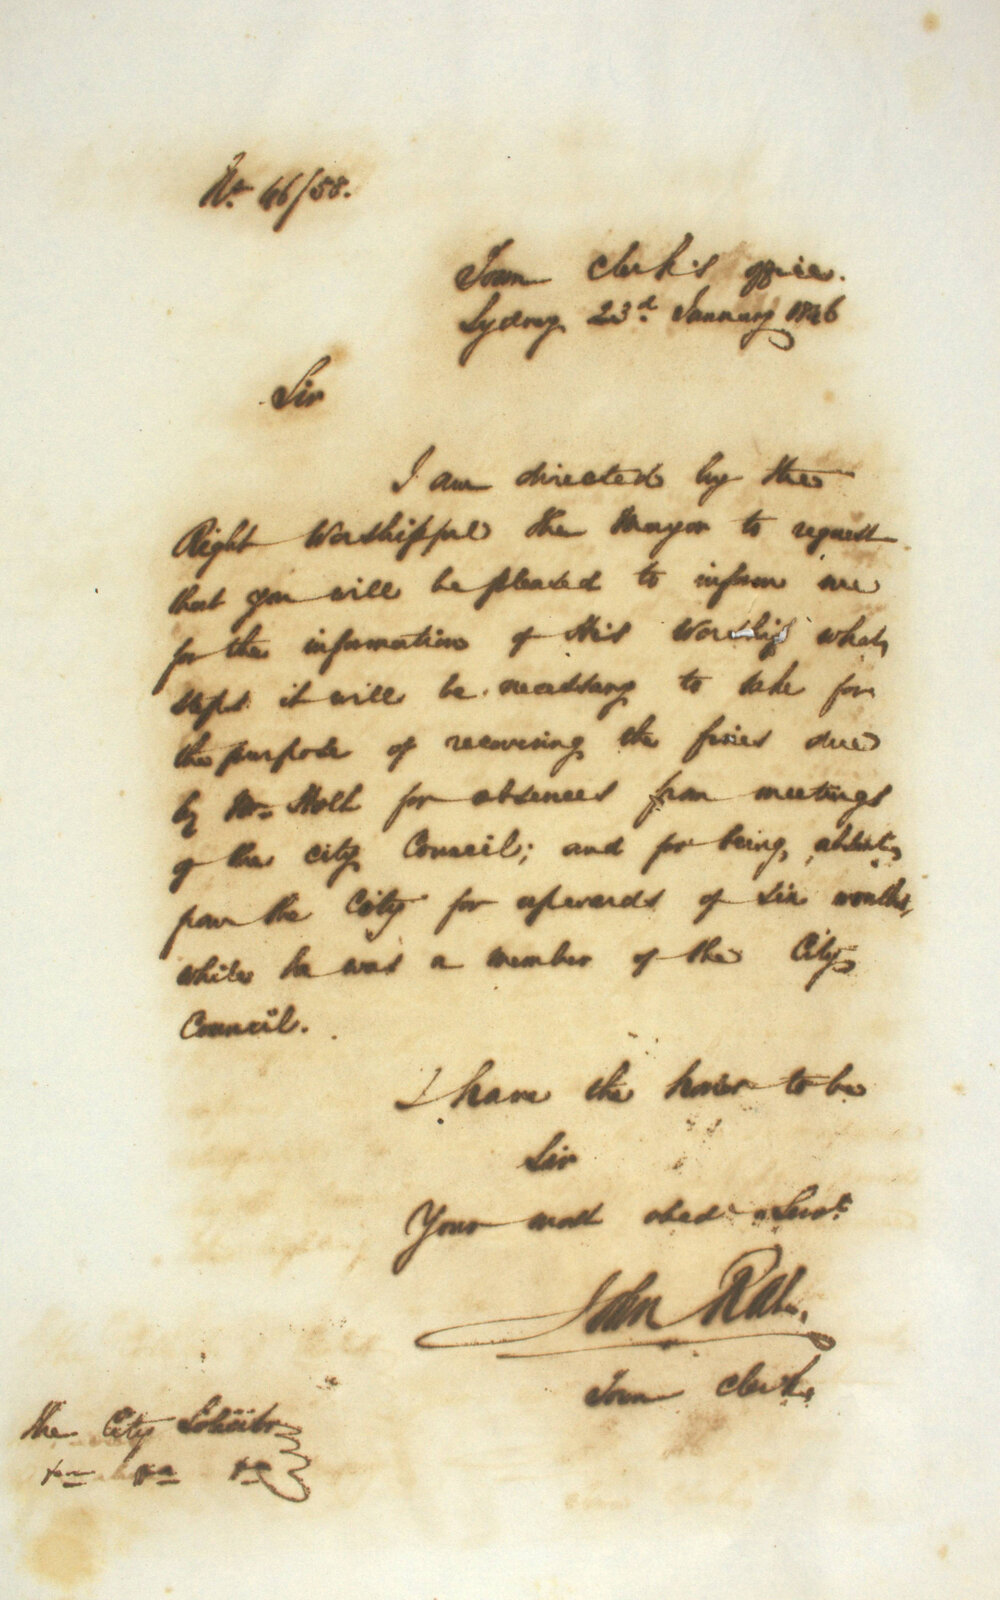 No. 46/58.
Town Clerk's office.
Sydney 23d. January 1846
Sir
I am directed by the
Right Worshipful the Mayor to request
that you will be pleased to inform me
for the information of His Worship what
steps it will be necessary to take for
the purpose of recovering the fines due
by Mr. Holt for absences from meetings
of the City Council; and for being absent
from the City for upwards of six months,
while he was a member of the City
Council.
I have the honor to be
Sir
Your most obed Servt.
John Rae.
Town Clerk,
The City Solicitor